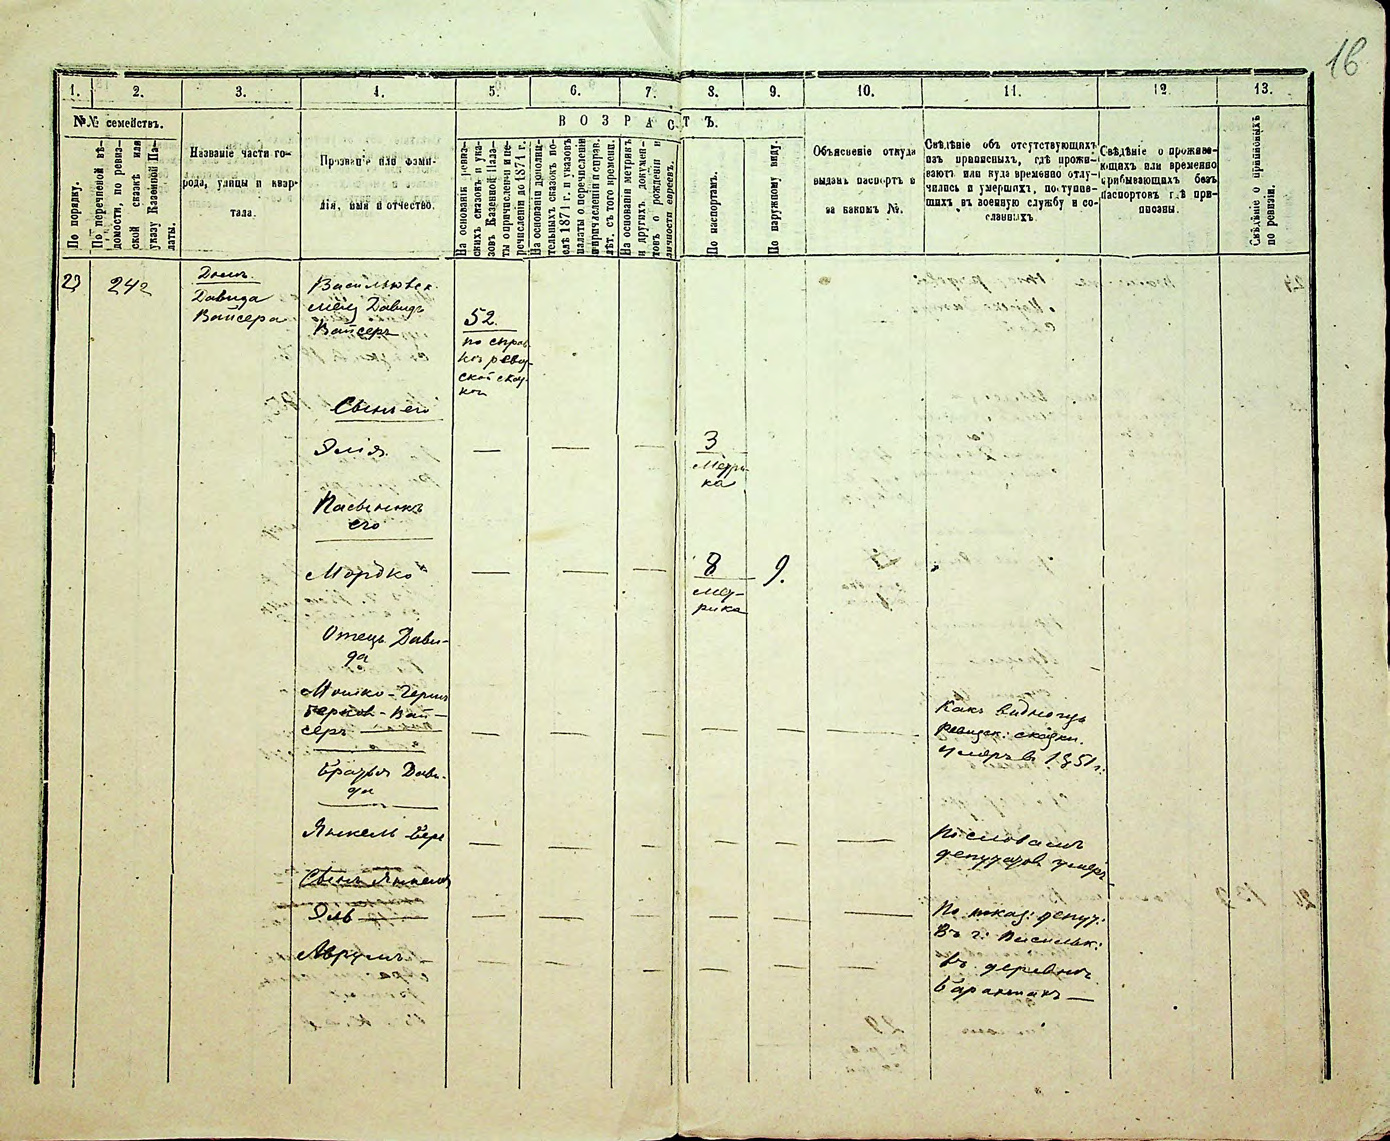 16
1.
2.
3.
4.
5.
6.
7.
8.
9.
10.
11.
12.
13.
№№ семействъ.
ВОЗРАСТЪ.
По порядку.
По перечневой вѣ-
домости, по ревиз-
ской сказкѣ или
указу Казенной Па-
латы.
Названіе части го-
рода, улицы и квар-
тала.
Прозваніе или фами-
лія, имя и отчество.
На основаніи ревиз-
скихъ сказокъ и ука-
зовъ Казенной Пала-
ты о причисленіи и пе-
речисленіи до 1871 г.
На основаніи дополни-
тельныхъ сказокъ по-
слѣ 1871 г. и указовъ
палаты о перечисленіи
и причисленіи и справ.
лѣт. съ того времени.
На основаніи метрикъ
и другихъ докумен-
товъ о рожденіи и
личности евреевъ.
По паспортамъ.
По наружному виду.
Объясненіе откуда
выданъ паспортъ и
за какимъ №.
Свѣдѣніе объ отсутствующихъ
изъ приписныхъ, гдѣ прожи-
ваютъ или куда временно отлу-
чились и умершихъ, поступив-
шихъ въ военную службу и со-
сланныхъ.
Свѣдѣніе о прожива-
ющихъ или временно
прибывающихъ безъ
паспортовъ гдѣ при-
писаны.
Свѣдѣніе о приписныхъ
по ревизіи.
23
242
Домъ
Давида
Вайсера
Давидъ
Вайсеръ
52
по справ
Сынъ его
Элія
— — —
3
Метри-
ка
его
Мордко
— — —
8
мет-
рика
9.
Отецъ Дави-
да
Мошко-Герш
Берков-Вай-
серъ
— — — — — —
Какъ видно изъ
ревизск: сказки
умеръ в 1851 г:
Братья Дави-
да
Янкель-Бер
— — — — — —
По словамъ
депутатов умеръ
Сынъ Янкеля
Эль
— — — — — —
По показ: депут:
Въ г: Васильк:
Аврумъ
— — — — — —
въ деревнѣ